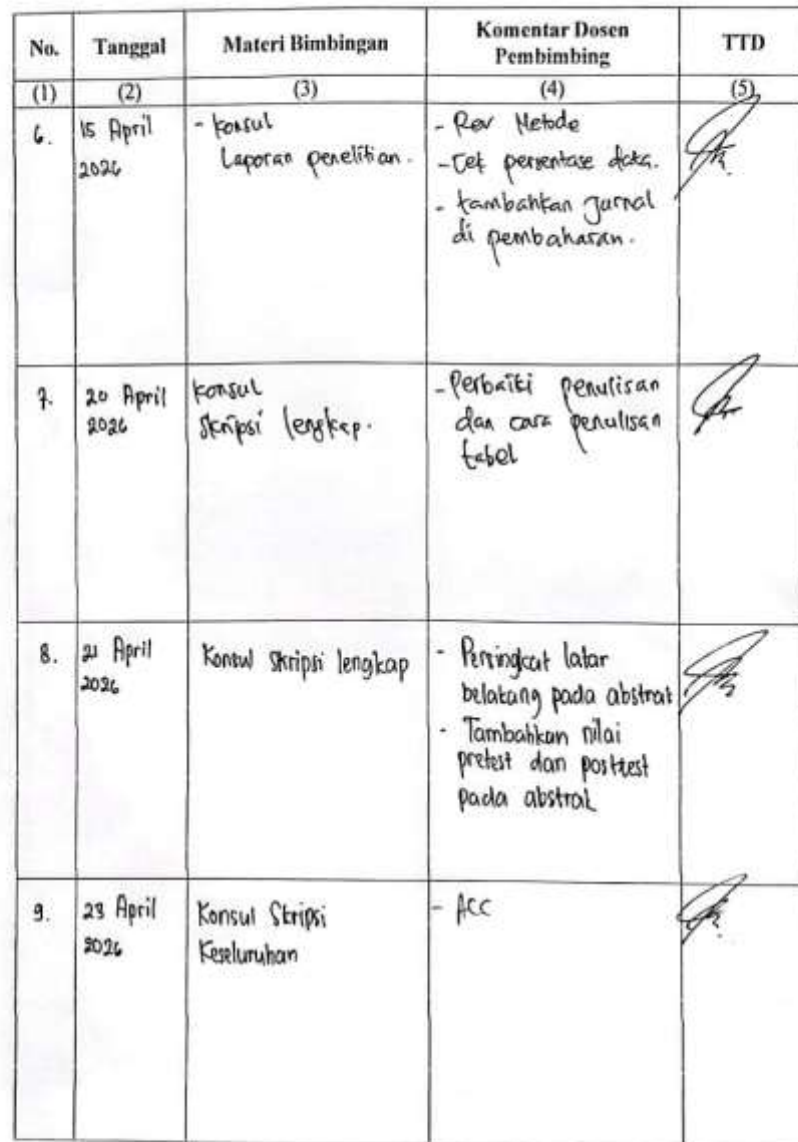 No. Tanggal Materi Bimbingan Komentar Dosen Pembimbing TTD
(1) (2) (3) (4) (5)
6. 15 April 2026
- Konsul
Laporan penelitian.
- Rev Metode
- Cek persentase data.
- tambahkan jurnal
di pembahasan.
7. 20 April 2026
Konsul
Skripsi lengkap.
- Perbaiki penulisan
dan cara penulisan
tabel
8. 21 April 2026
Konsul Skripsi lengkap
- Persingkat latar
belakang pada abstrak
- Tambahkan nilai
pretest dan posttest
pada abstrak
9. 23 April 2026
Konsul Skripsi
Keseluruhan
- ACC